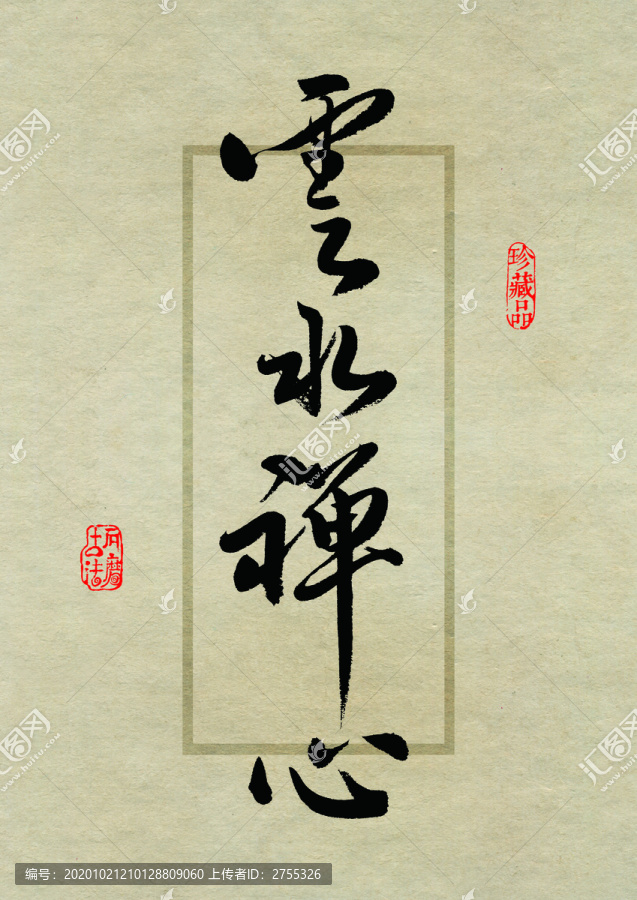 雲水禪心
珍藏品
汇图网
www.huitu.com
编号：20201021210128809060 上传者ID：2755326